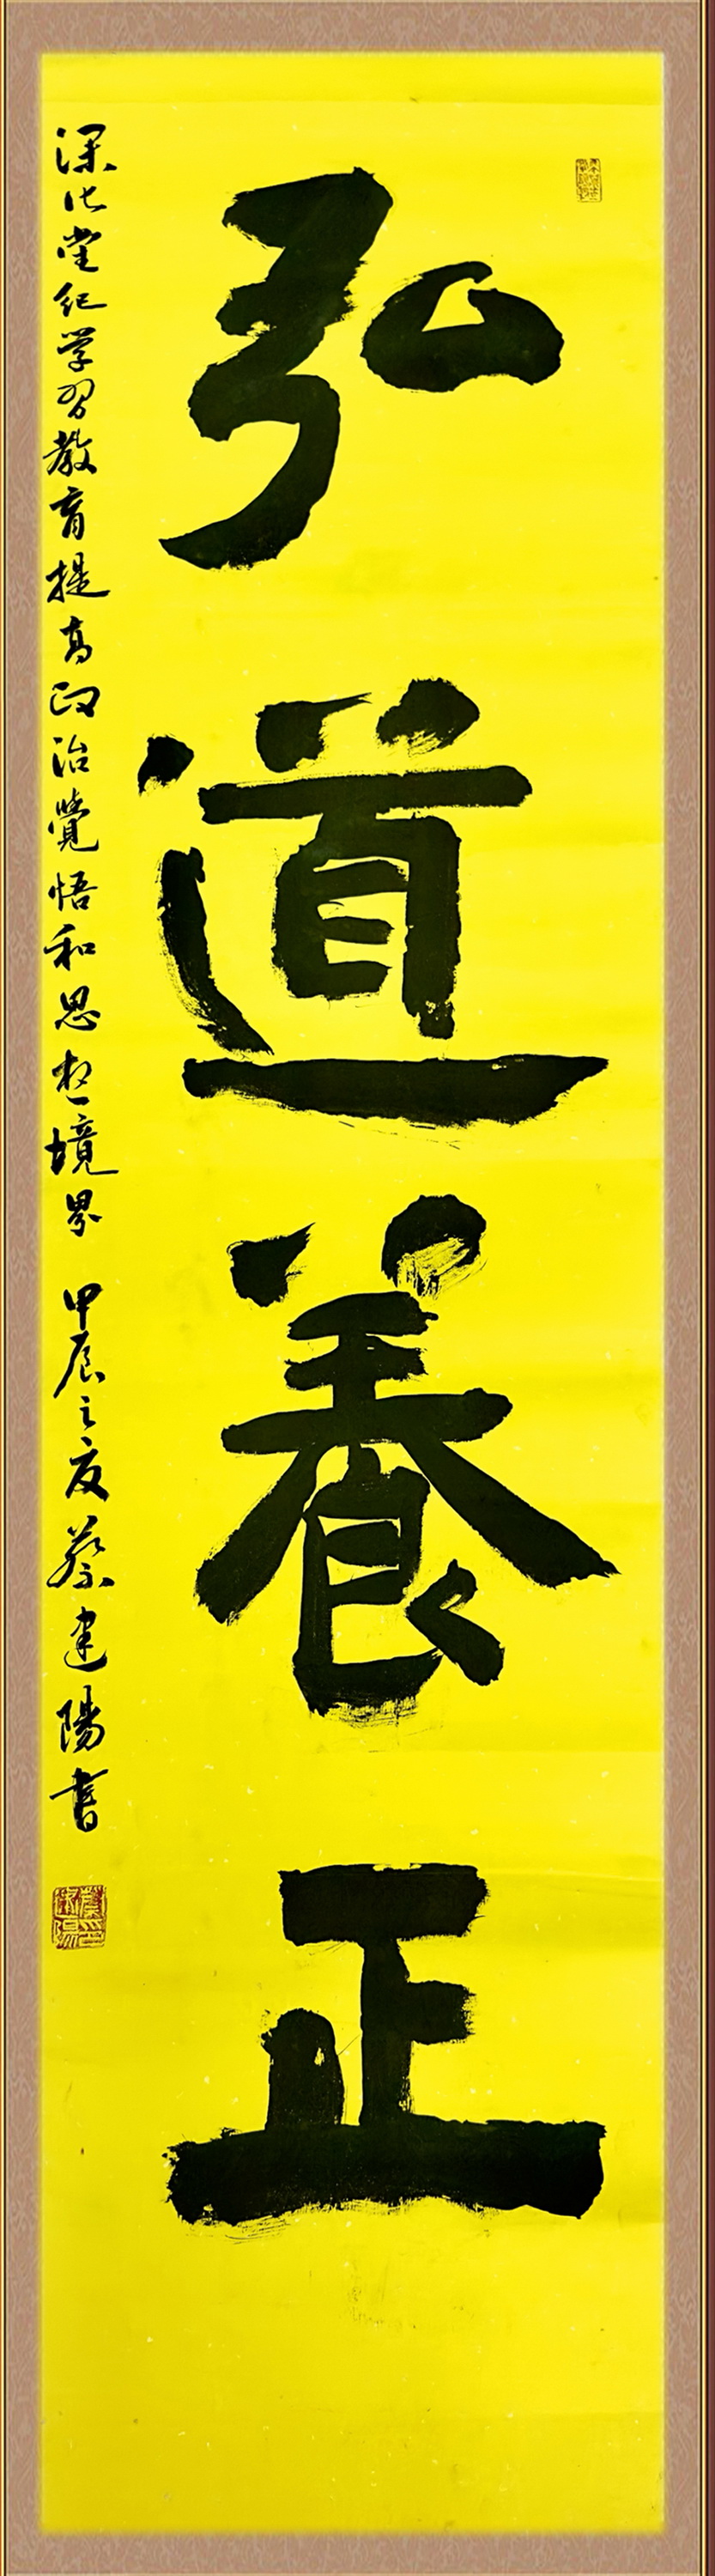 弘道養正
深化党纪学习教育提高政治覺悟和思想境界 甲辰之夏蔡建陽書